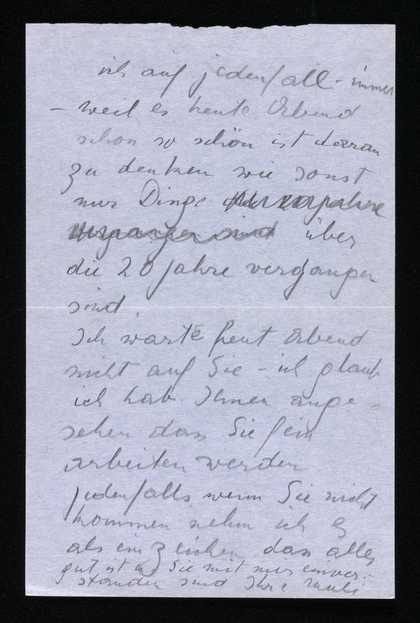 ich auf jedenfall - immer
- weil es heute Abend
schon so schön ist daran
zu denken wie sonst
nur Dinge über
die 20 Jahre vergangen
sind.
Ich warte heut Abend
nicht auf Sie - ich glaub
ich hab Ihnen ange-
sehen dass Sie fein
arbeiten werden
jedenfalls wenn Sie nicht
kommen nehm ich es
als ein Zeichen dass alles
gut ist u Sie mit mir einver-
standen sind Ihre